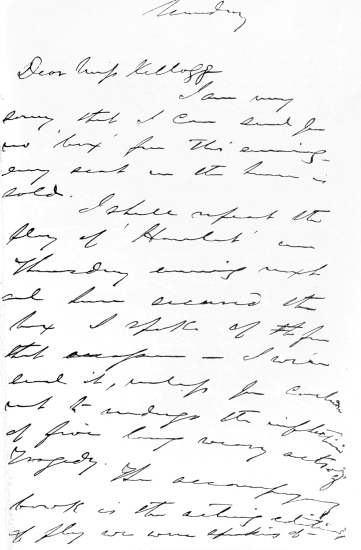 Tuesday
Dear Miss Kellogg
I am very
sorry that I can send you
no 'box' for this evening -
every seat in the house is
sold.
I shall repeat the
play of 'Hamlet' on
Thursday evening next
and have secured the
box I spoke of for
that occasion — I will
send it, unless you
not to undergo the infliction
of five long weary acts of
Tragedy. The accompanying
book is the acting edition
of play we were speaking of —